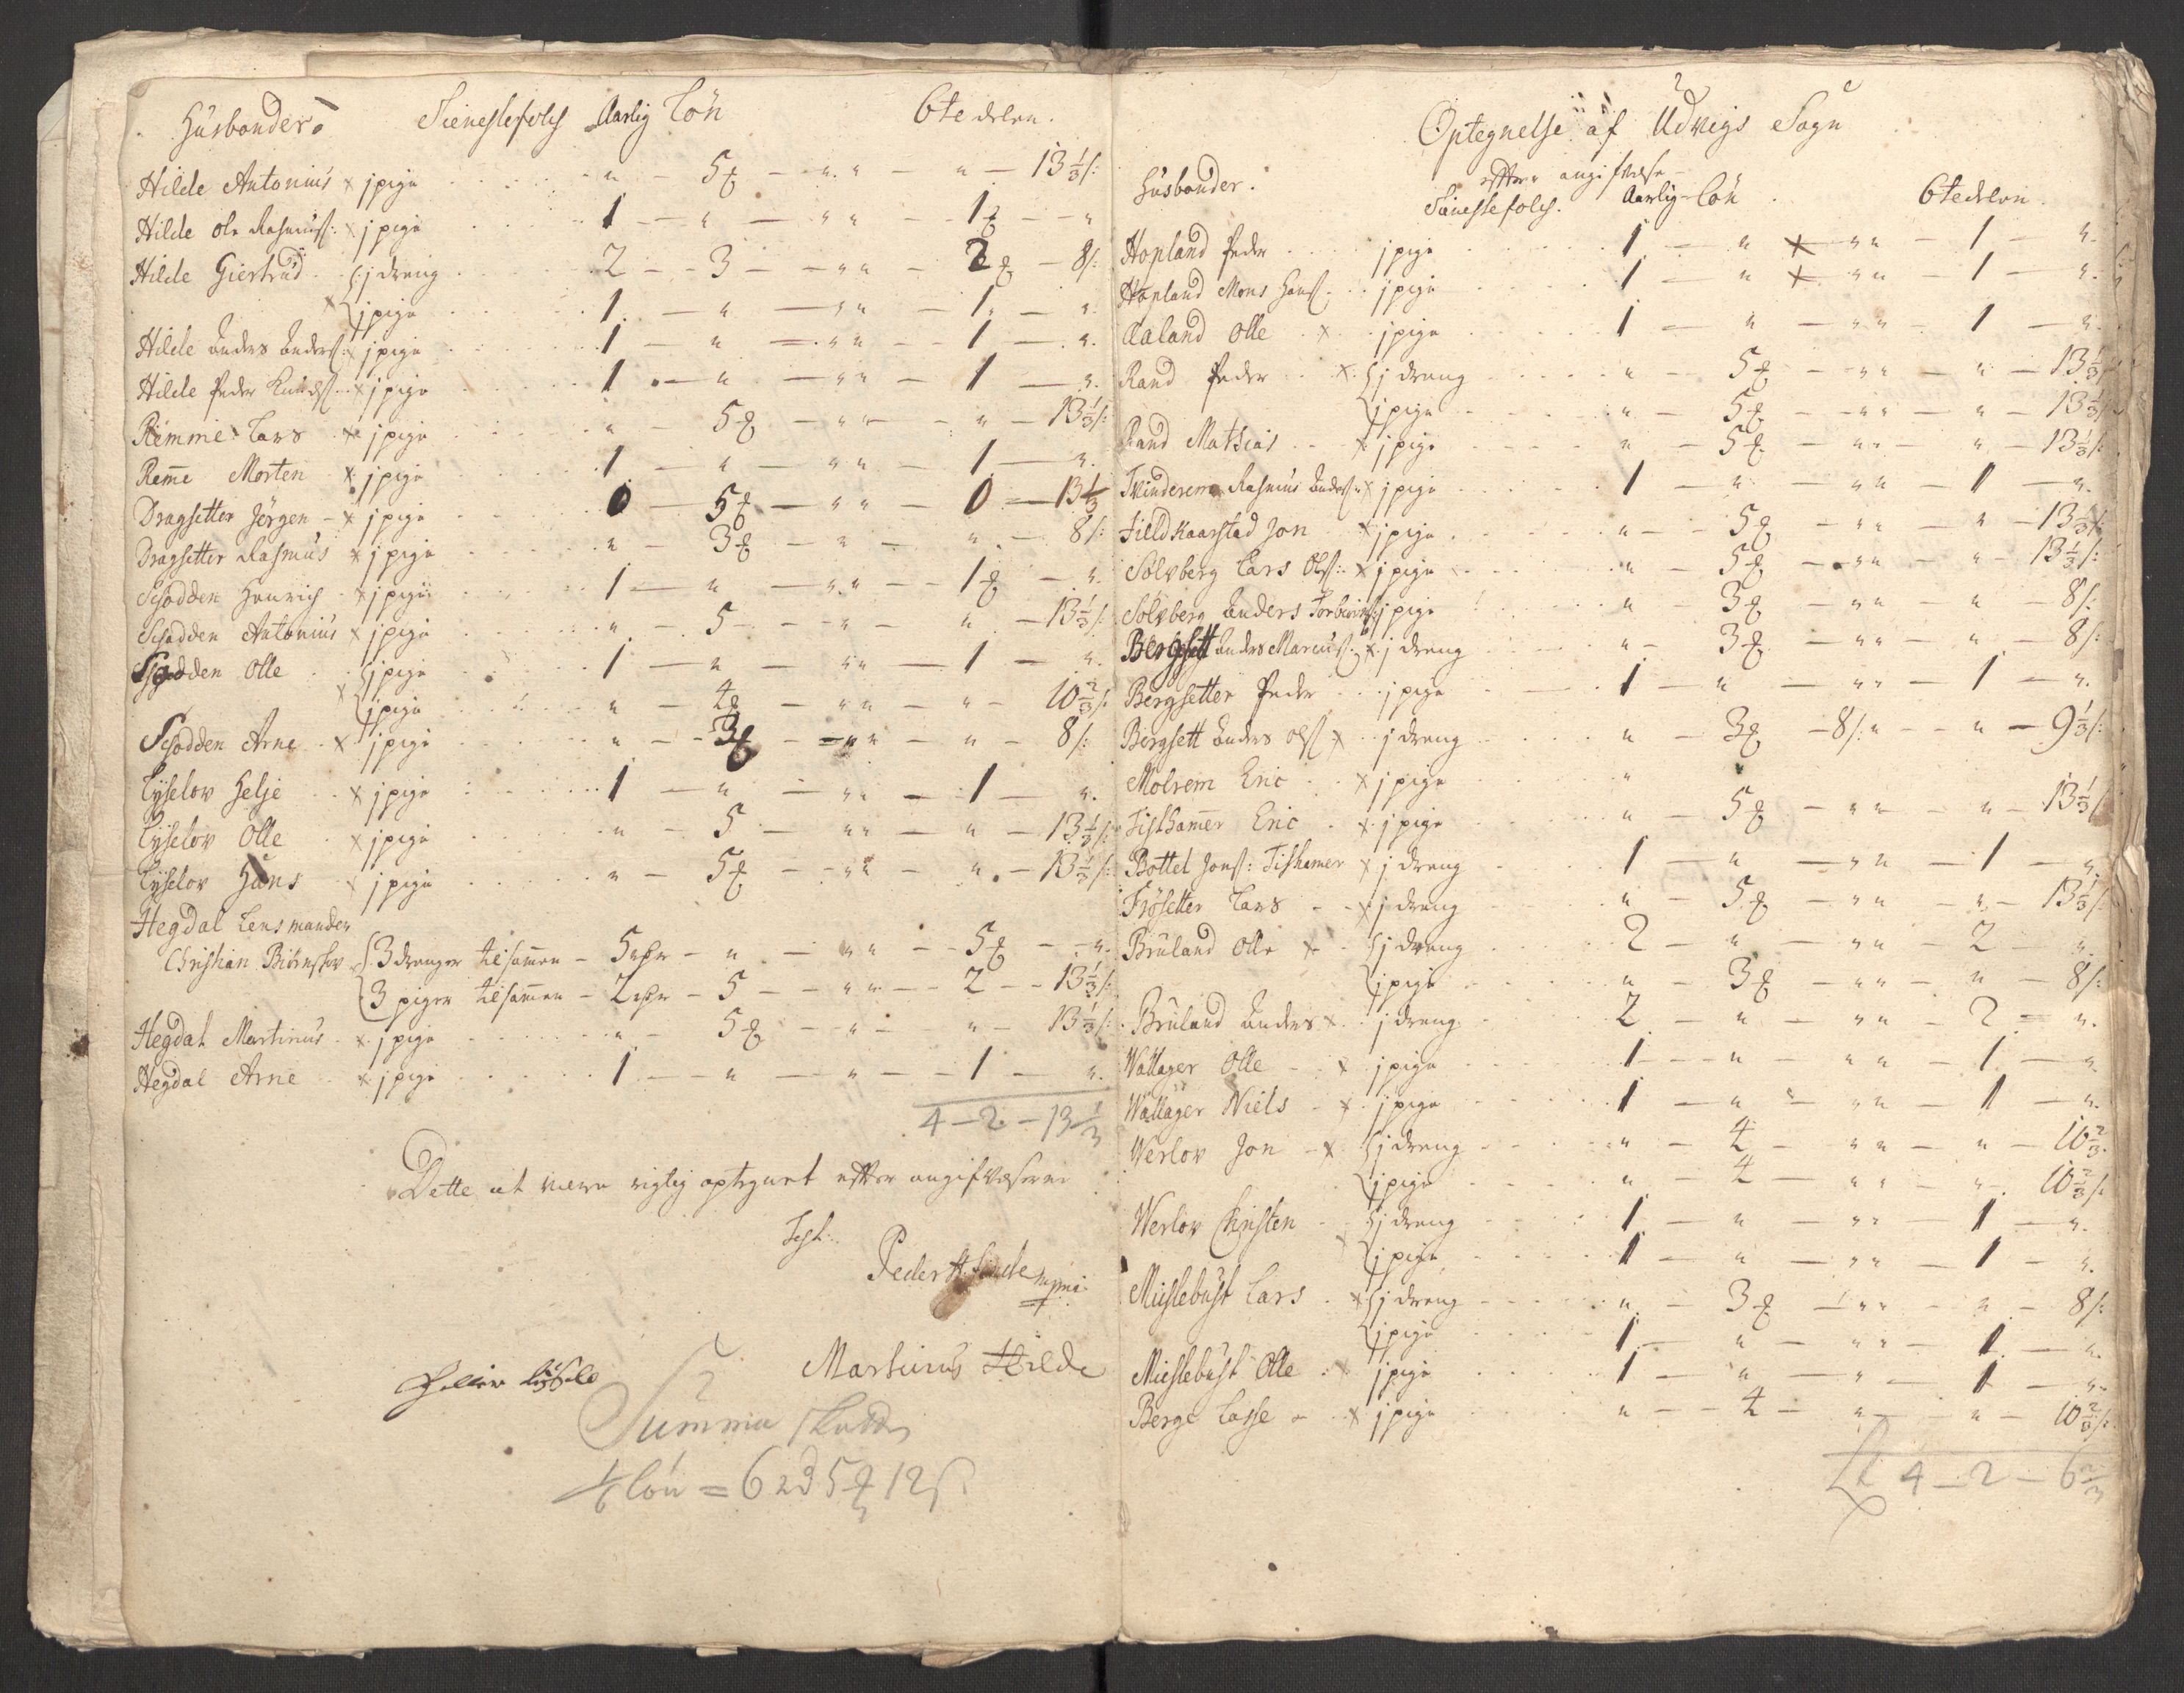 Husbonder. Tienestefolch Aarlig Løn 6te delen.
Hilde Antonius x j pige " - 5 ꝥ - " " - " - 13 1/3 s:
Hilde Ole Rasmuss: x j pige 1 - " - " " - 1 ꝥ - "
Hilde Giertrud j dreng 2 - 3 - " " - 2 ꝥ - 8 s:
x j pige 1 - " - " " - 1 - "
Hilde Anders Anders: x j pige 1 - " - " " - 1 - "
Hilde Peder Knuds: x j pige 1 - " - " " - 1 - "
Remme Lars x j pige " - 5 ꝥ - " " - " - 13 1/3 s:
Rem̄e Morten x j pige 1 - " - " " - 1 - "
Dragsetter Jørgen - x j pige 0 - 5 ꝥ - " " - 0 - 13 1/3
Dragsetter Rasmus x j pige " - 3 ꝥ - " - " - 8 s:
Schodden Henrich x j pige 1 - " - " " - 1 ꝥ - "
Schodden Antonius x j pige " - 5 - " - " - 13 1/3 s:
Schodden Olle j pige 1 - " - " " - 1 - "
x j pige " - 4 ꝥ - " " - " - 10 2/3 s:
Schodden Arne x j pige " - 3 ꝥ - " " - " - 8 s:
Lyselov Helje x j pige 1 - " - " " - 1 - "
Lyselov Olle x j pige " - 5 - " " - " - 13 1/3 s:
Lyselov Hans x j pige " - 5 ꝥ - " " - " - 13 1/3 s:
Hegdal Lensmanden
Christian Biørnshov 3 drenger tilsam̄en - 5 rdr - " - " " - 5 ꝥ - "
3 piger tilsam̄en - 2 rdr - 5 - " " - 2 - 13 1/3 s:
Hegdal Martinus x j pige " - 5 ꝥ - " - " - 13 1/3 s:
Hegdal Arne x j pige 1 - " - " - 1 - "
4 - 2 - 13 1/3
Dette at være rigtig optegnet efter angifvelserne
Test:
Peder mpria
Martinus Hilde
Summa skatten
1/6 Løn = 62 rd 5 ꝥ 12 s
Optegnelse af Udvigs Sogn
efter angifvelse
Husbonder. Tienestefolch. Aarlig Løn 6te delen.
Hopland Peder j pige 1 - " x " " - 1 - "
Hopland Mons Hans: j pige 1 - " x " " - 1 - "
Aaland Olle x j pige 1 - " - " " - 1 - "
Rand Peder x j dreng " - 5 ꝥ - " " - " - 13 1/3 s
j pige " - 5 ꝥ - " " - " - 13 1/3 s
Rand Mathias x j pige " - 5 ꝥ - " " - " - 13 1/3 s:
Tvinderem Rasmus Anders: x j pige 1 - " - " " - 1 - "
Fieldkaarstad Jon x j pige " - 5 ꝥ - " " - " - 13 1/3 s:
Solvberg Lars Ols: x j pige " - 5 ꝥ - " " - " - 13 1/3 s:
Solvberg Anders j pige " - 3 ꝥ - " " - " - 8 s:
Bergsett Anders Marcus: x j dreng " - 3 ꝥ - " " - " - 8 s:
Bergsetter Peder j pige 1 - " - " " - 1 - "
Bergsett Anders Ols: x j dreng " - 3 ꝥ - 8 s: " - " - 9 1/3 s:
Molrem Eric x j pige "
Fistham̄er Eric x j pige " - 5 ꝥ - " " - " - 13 1/3 s
Bottel Jons: Fisthamer x j dreng 1 - " - " " - 1 - "
Frøsetter Lars x j dreng " - 5 ꝥ - " " - " - 13 1/3 s:
Bruland Olle x j dreng 2 - " - " " - 2 - "
j pige " - 3 ꝥ - " " - " - 8 s:
Bruland Anders x j dreng 2 - " - " " - 2 - "
Wallager Olle x j pige 1 - " - " " - 1 - "
Wallager Niels x j pige 1 - " - " " - 1 - "
Werlov Jon - x j dreng " - 4 - " " - " - 10 2/3
j pige " - 4 - " " - " - 10 2/3 s:
Werlov Christen j dreng 1 - " - " " - 1 - "
j pige 1 - " - " " - 1 - "
Myklebust Lars x j dreng " - 3 ꝥ - " " - " - 8 s:
j pige 1 - " - " " - 1 - "
Myklebust Olle x j pige 1 - " - " - 1 - "
Berge Lasse x j pige " - 4 - " - " - 10 2/3 s:
4 - 2 - 6 2/3